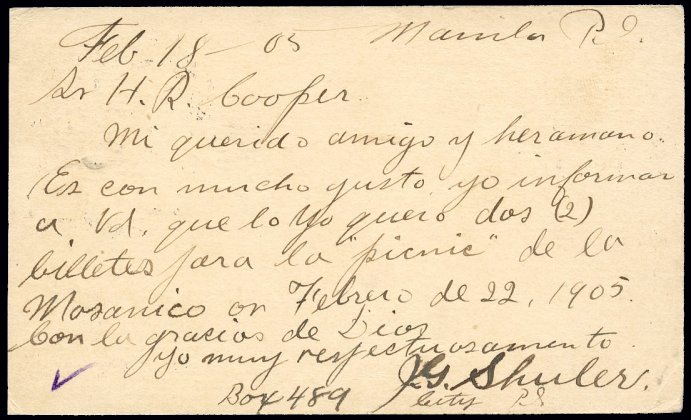 Feb 18 - 05 Manila P.I.
Sr H. R. Cooper
Mi querido amigo y heramano.
Es con mucho gusto, yo informar
a Vd, que lo yo quero dos (2)
billetes para la "picnic" de la
Mosanico on Febrero de 22, 1905.
Con la gracias de Dios
yo muy respectuosamento
J.G. Shuler.
Box 489 City P.I.